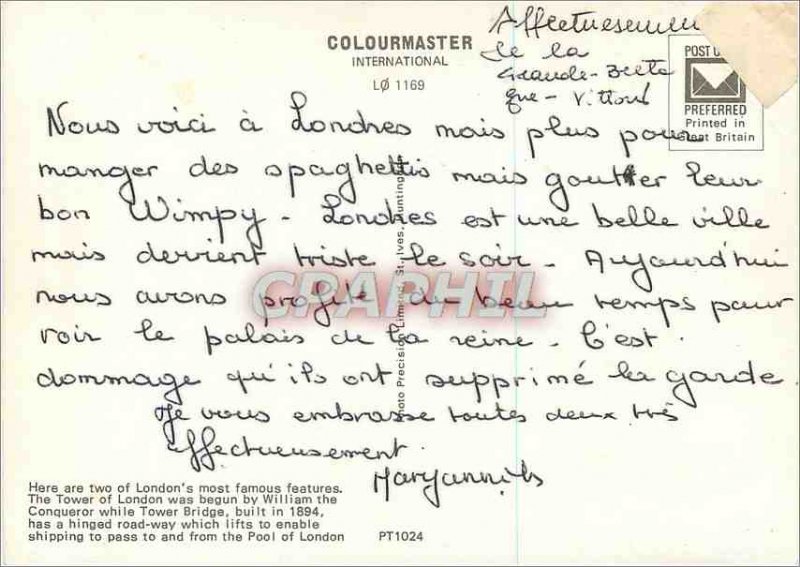 COLOURMASTER
INTERNATIONAL
LØ 1169
Affectueusemen
de la
Grande-Breta
gne -
POST
PREFERRED
Printed in
Great Britain
Nous voici à Londres mais plus pour
manger des spaghettis mais goutter leur
bon Wimpy - Londres est une belle ville
mais devient triste le soir - Aujourd'hui
nous avons profité du beau temps pour
voir le palais de la reine - C'est
dommage qu'ils ont supprimé la garde
Je vous embrasse toutes deux très
affectueusement.
CPAPHIL
Photo Precision Limited, St. Ives, Huntingd
Here are two of London's most famous features.
The Tower of London was begun by William the
Conqueror while Tower Bridge, built in 1894,
has a hinged road-way which lifts to enable
shipping to pass to and from the Pool of London
PT1024